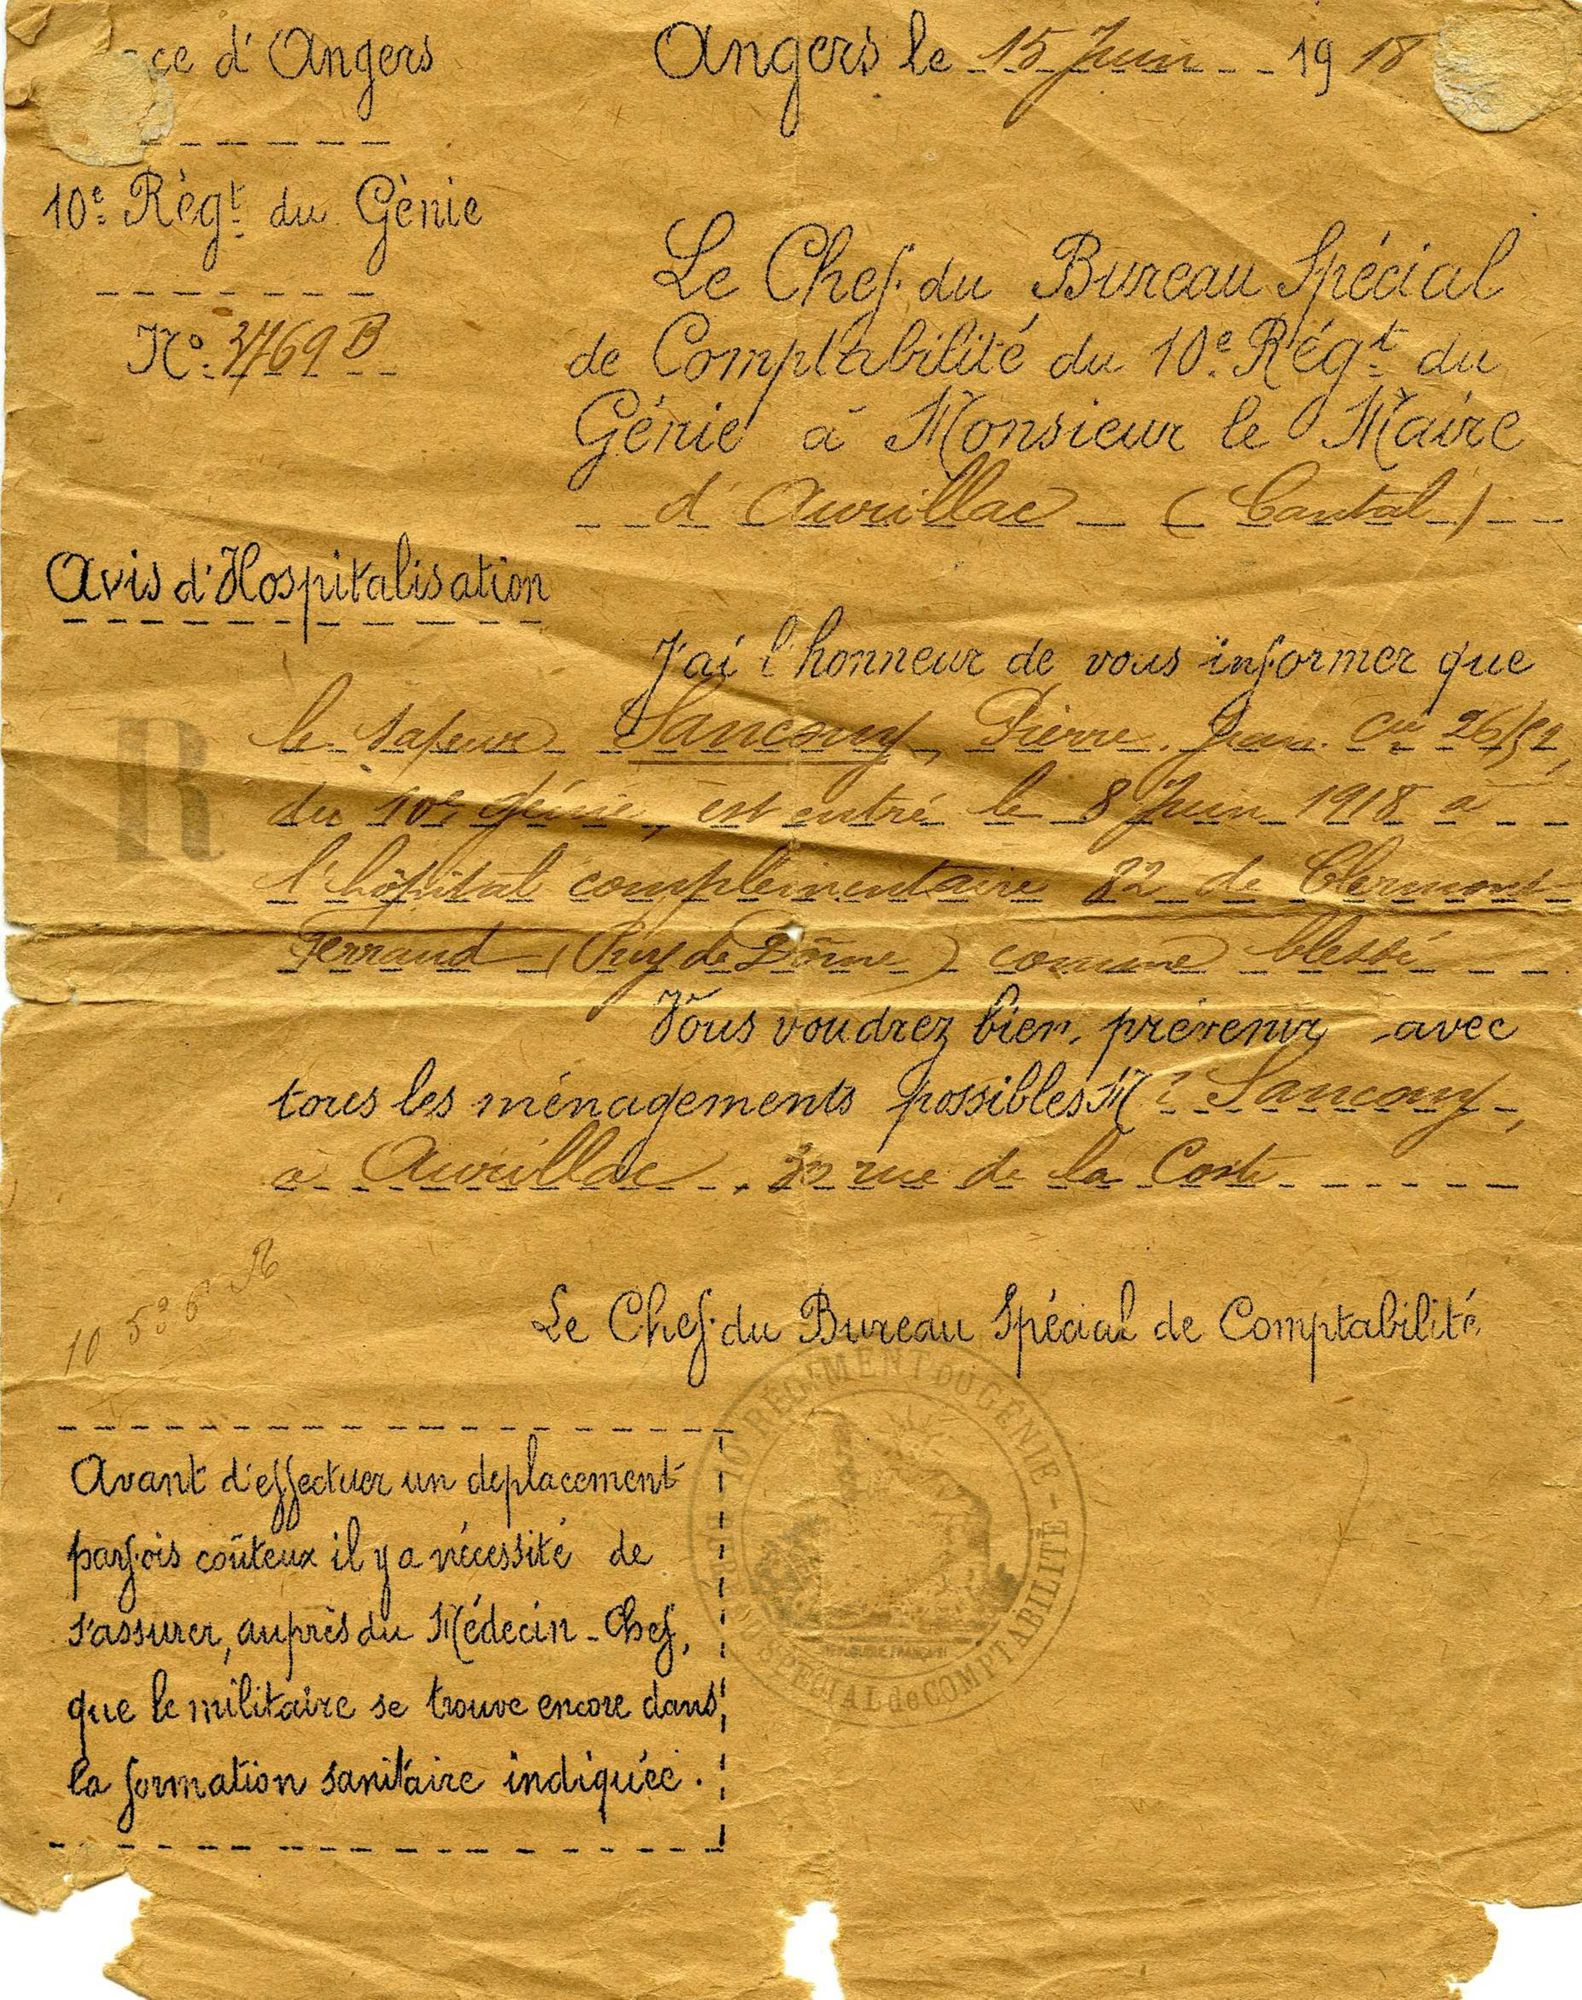 ce d'Angers
Angers le 15 Juin 1918
10e Règt du Gènie
No 3769 B
Le Chef du Bureau Spécial
de Comptabilité du 10e Régt du
Génie à Monsieur le Maire
d'Aurillac (Cantal)
Avis d'Hospitalisation
J'ai l'honneur de vous informer que
le sapeur Sancouy, Pierre, Jean. Cie 26/52,
du 10e génie, est entré le 8 Juin 1918 à
l'hôpital complémentaire 22 de Clermont-
Ferrand (Puy de Dôme) comme blessé
R
Vous voudrez bien prévenir avec
tous les ménagements possibles Mr Sancouy,
à Aurillac, rue de la Coste
10 536 R
Le Chef du Bureau Spécial de Comptabilité
10e RÉGIMENT DU GÉNIE
SPÉCIAL de COMPTABILITÉ
RÉPUBLIQUE FRANÇAISE
Avant d'effectuer un deplacement
parfois coûteux il y a nécessité de
s'assurer, auprès du Médecin-Chef,
que le militaire se trouve encore dans
la formation sanitaire indiquée.